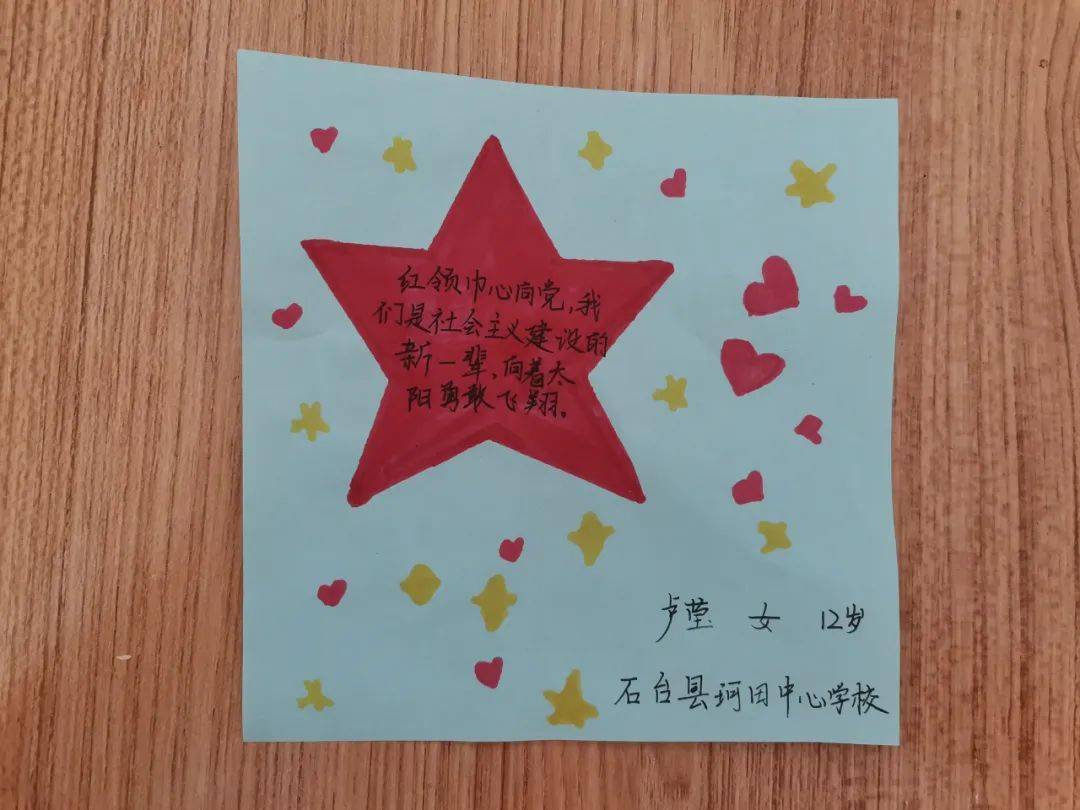 红领巾心向党，我
们是社会主义建设的
新一辈，向着太
阳勇敢飞翔。
卢莹 女 12岁
石台县珂田中心学校